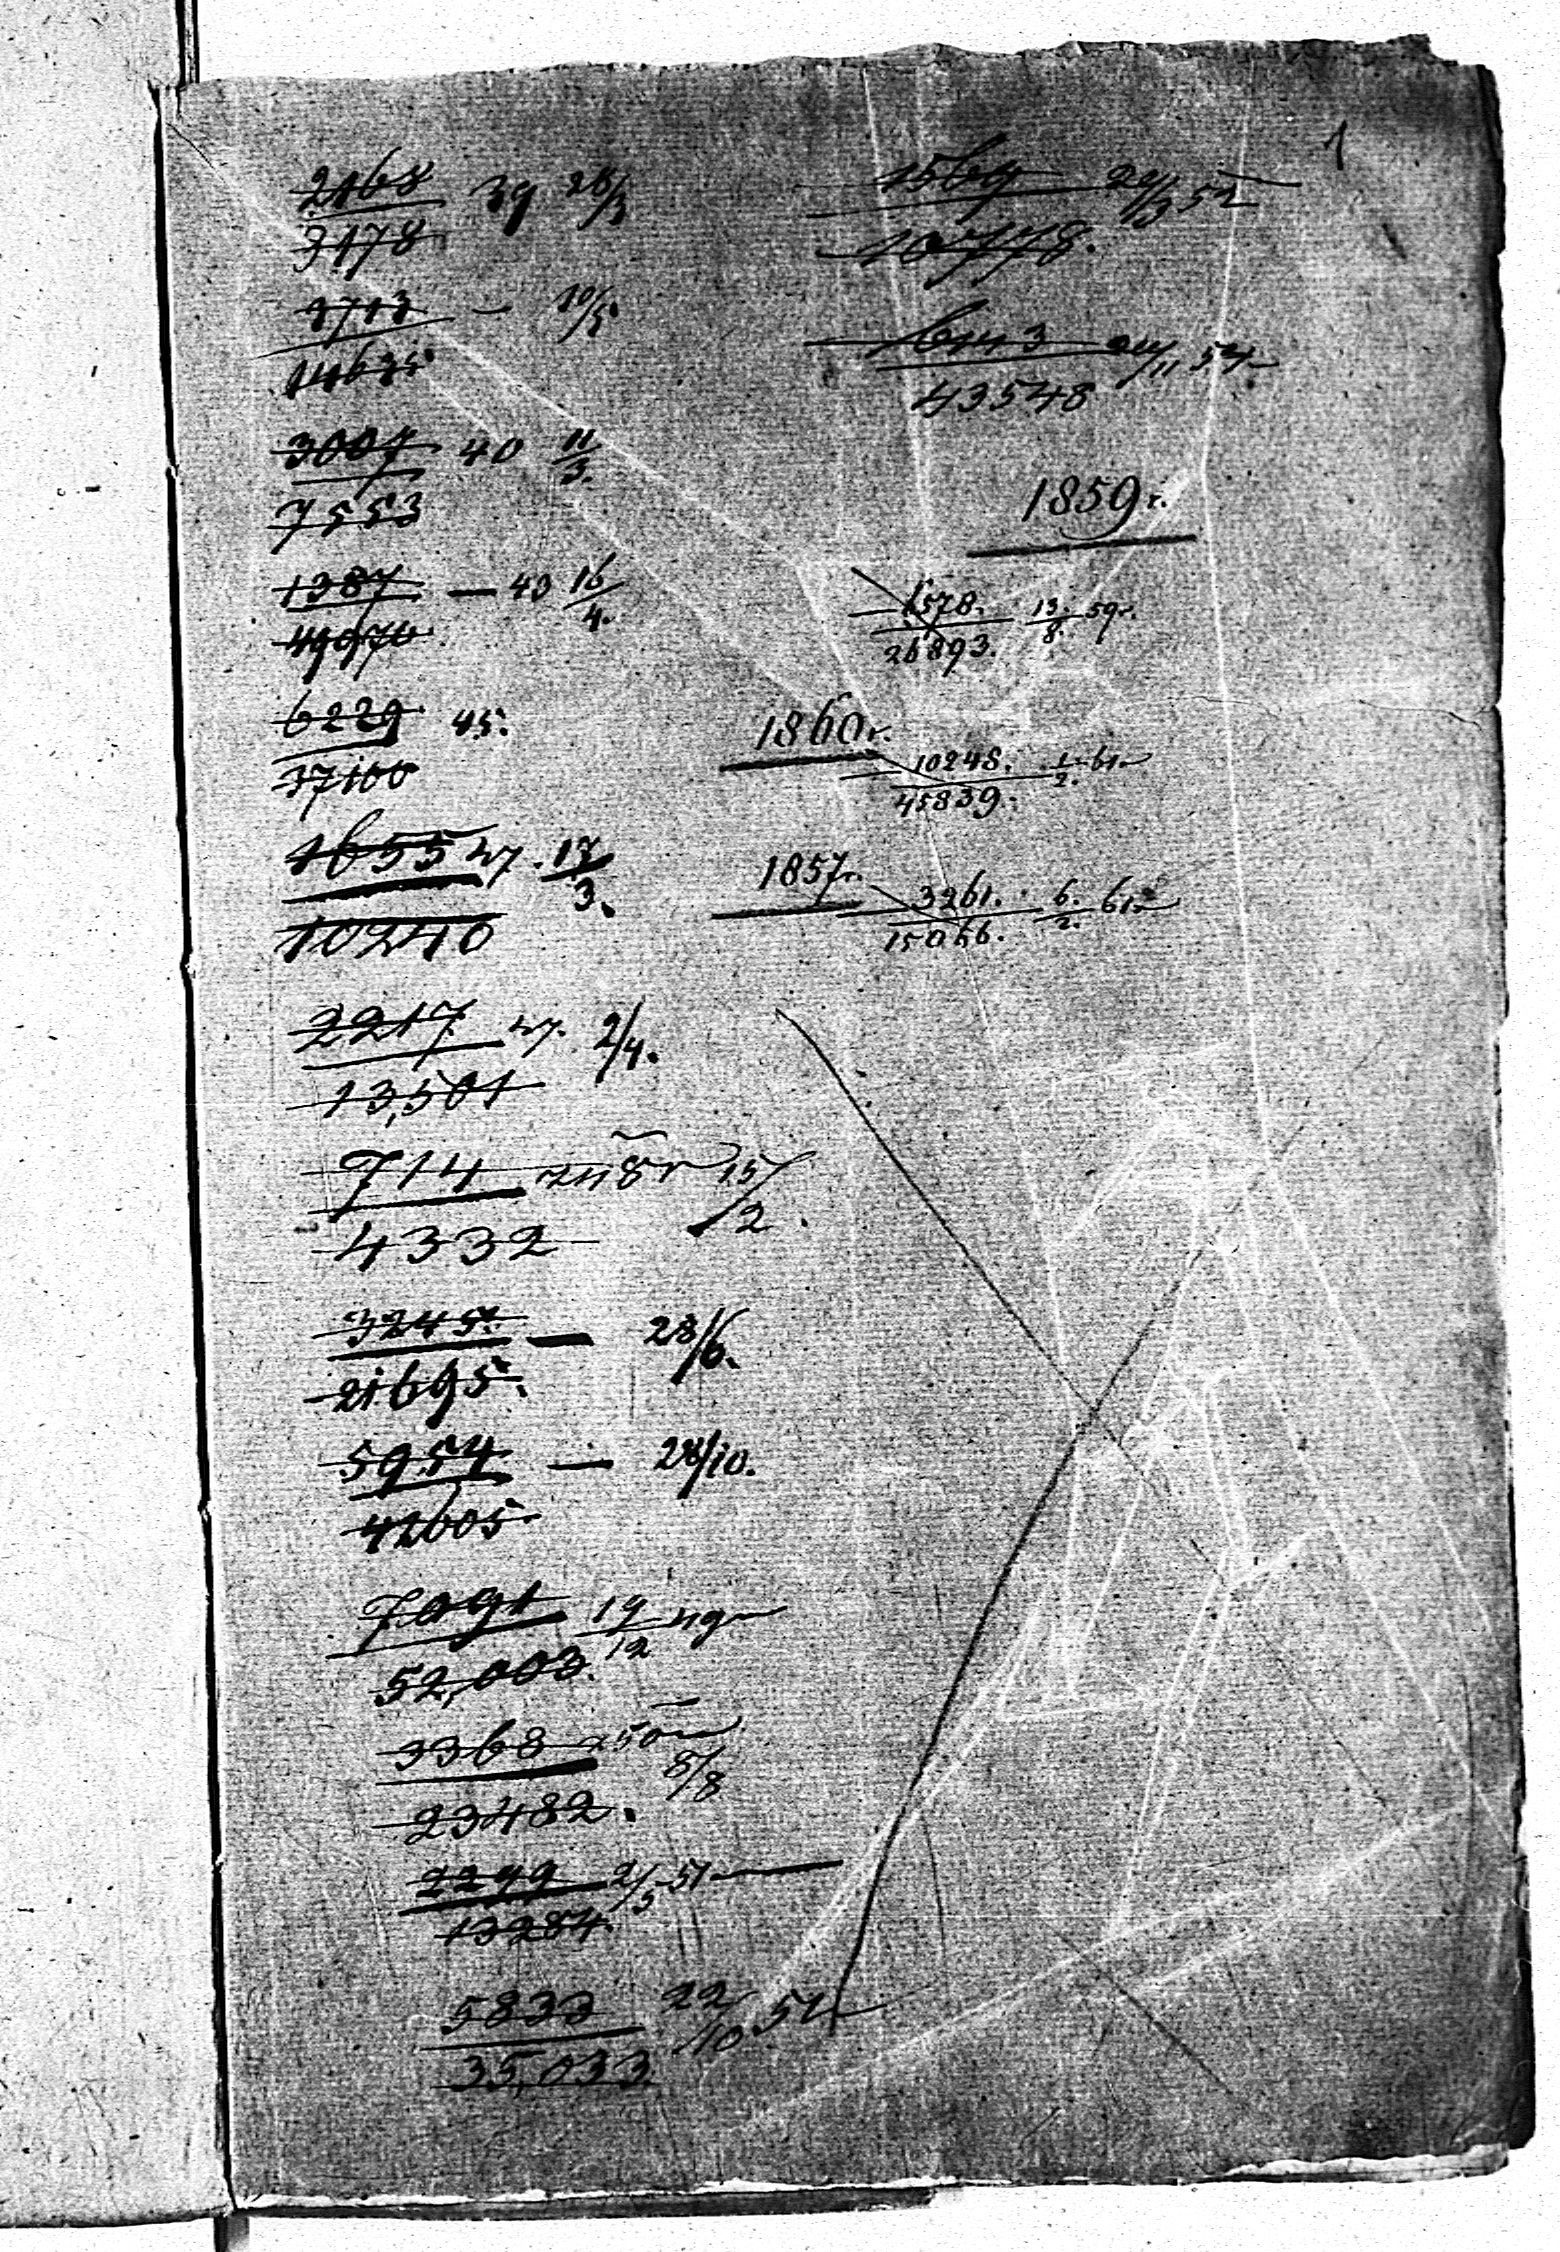 1
2168 39 28/3
3178
1713 — 10/5
14635
3007 40 11/3.
7553
1387 — 43 16/4.
49970
6229 45.
37100
1655 47. 17/3.
10240
2217 47. 2/4.
13,501
714 48 15/2.
4332
3245. — 28/6.
21695.
5954 — 28/10.
42605
7091 19/12 49
52,003.
3368 50 8/8
23482.
2249 2/5 51
13284.
5833 22/10 51
35,033
1569 24/3 52
10778.
6143 24/11 54
43548
1859г.
6578. 13./8. 59г.
26893.
1860г.
10248. 1/2. 61
45839.
1857г.
3261. 6./2. 61
15066.